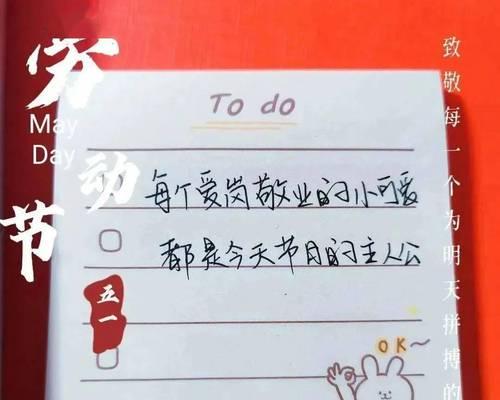 劳动节
May
Day
To do
每个爱岗敬业的小可爱
都是今天节日的主人公
五一
OK~
致敬每一个为明天拼搏的